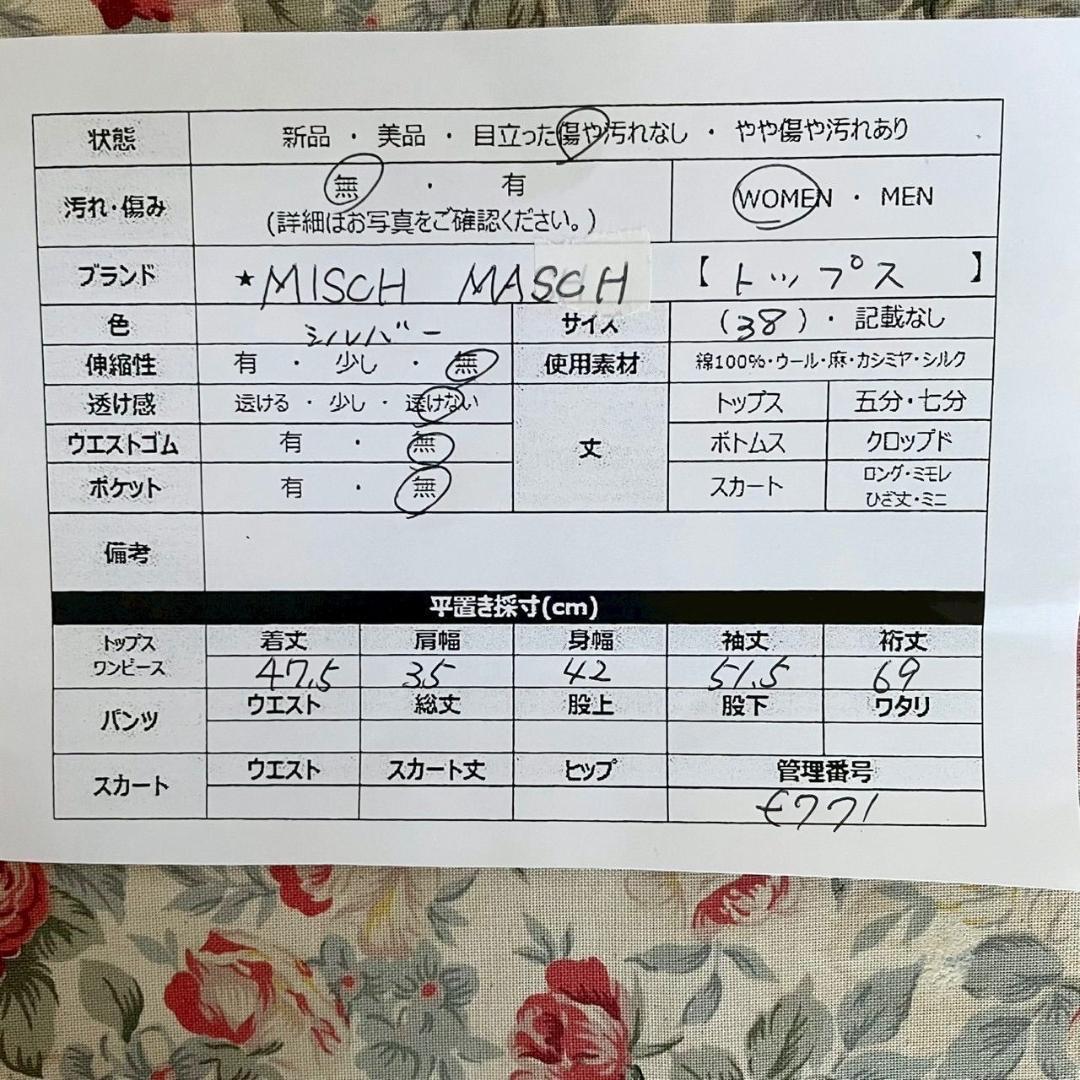 状態 新品 ・ 美品 ・ 目立った傷や汚れなし ・ やや傷や汚れあり
汚れ・傷み 無 ・ 有 WOMEN ・ MEN
(詳細はお写真をご確認ください。)
ブランド ★MISCH MASCH 【トップス】
色 シルバー サイズ (38)・記載なし
伸縮性 有 ・ 少し ・ 無 使用素材 綿100%・ウール・麻・カシミヤ・シルク
透け感 透ける ・ 少し ・ 透けない 丈 トップス 五分・七分
ウエストゴム 有 ・ 無 ボトムス クロップド
ポケット 有 ・ 無 スカート ロング・ミモレ
ひざ丈・ミニ
備考
平置き採寸(cm)
トップス ワンピース 着丈 肩幅 身幅 袖丈 裄丈
47.5 35 42 51.5 69
パンツ ウエスト 総丈 股上 股下 ワタリ
スカート ウエスト スカート丈 ヒップ 管理番号